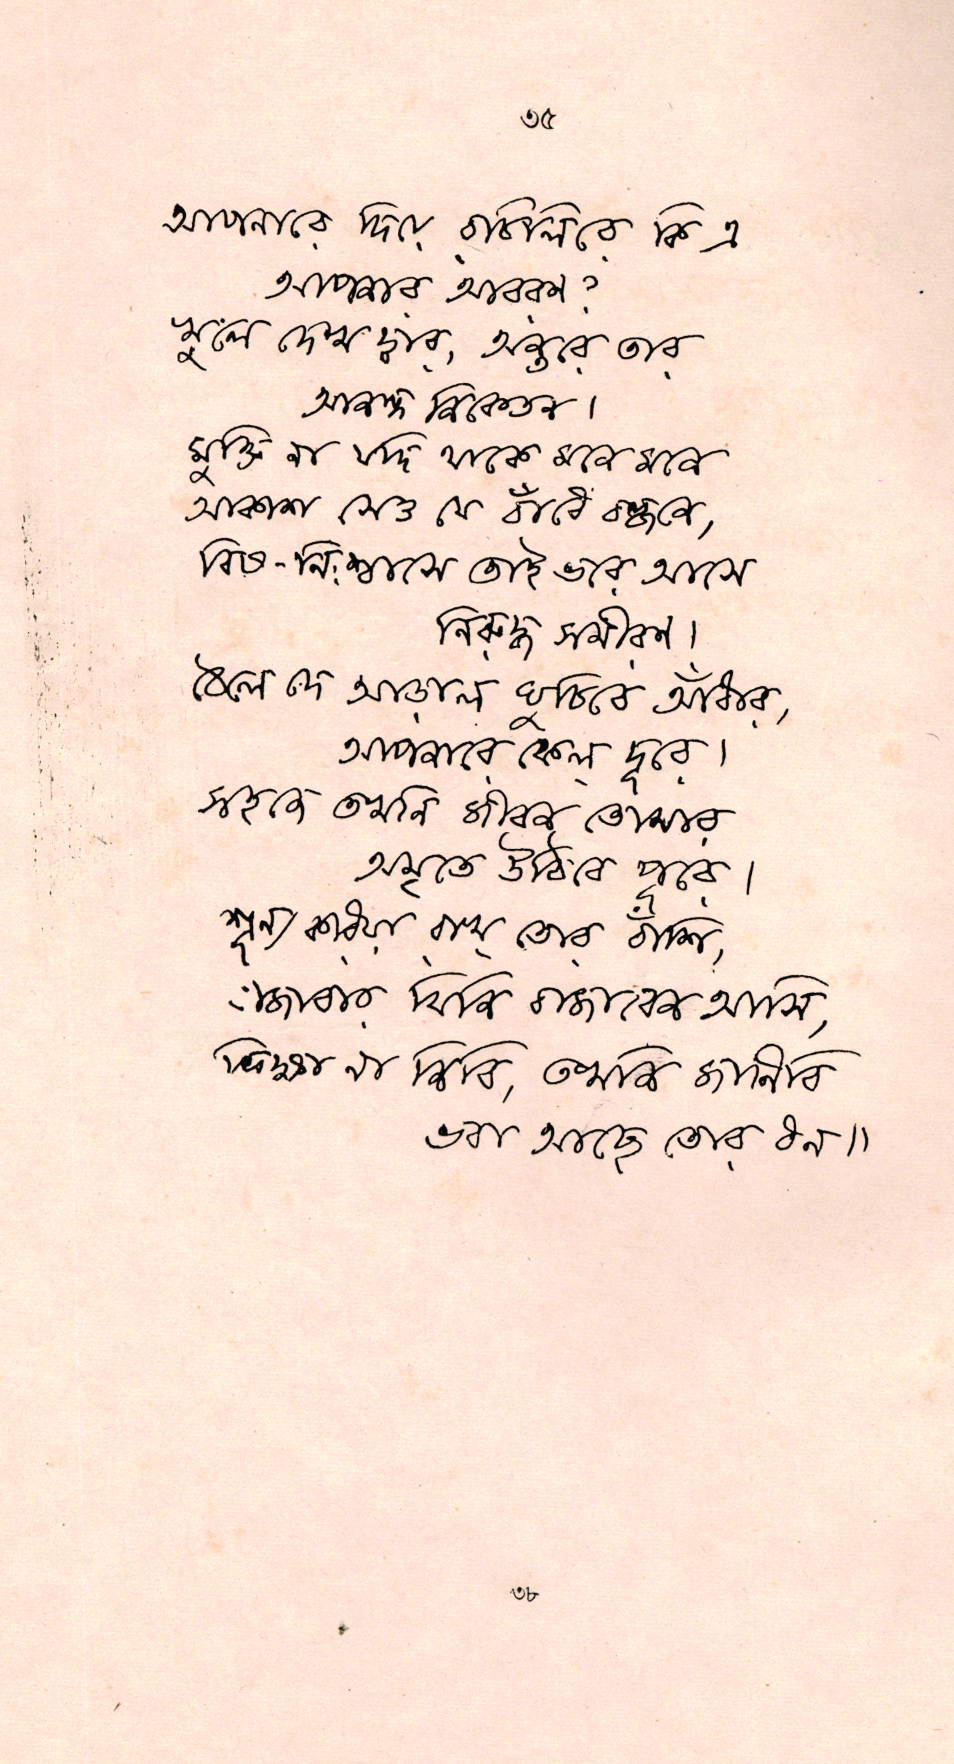 ৩৫
আপনারে দিয়ে রচিলিরে কি এ
আপনার আবরণ?
খুলে দেখ্ দ্বার, অন্তরে তার
আনন্দ নিকেতন।
মুক্তি না যদি থাকে মনে মনে
আকাশ সেও যে বাঁধে বন্ধনে,
বিষ-নিঃশ্বাসে তাই ভরে আসে
নিরুদ্ধ সমীরণ।
ঠেলে দে আড়াল ঘুচিবে আঁধার,
আপনারে ফেল্ দূরে।
সহজে তখনি জীবন তোমার
অমৃতে উঠিবে পূরে।
শূন্য করিয়া রাখ্ তোর বাঁশি,
বাজাবার যিনি বাজাবেন আসি,
ভিক্ষা না নিবি, তখনি জানিবি
ভরা আছে তোর ধন॥
৩৮